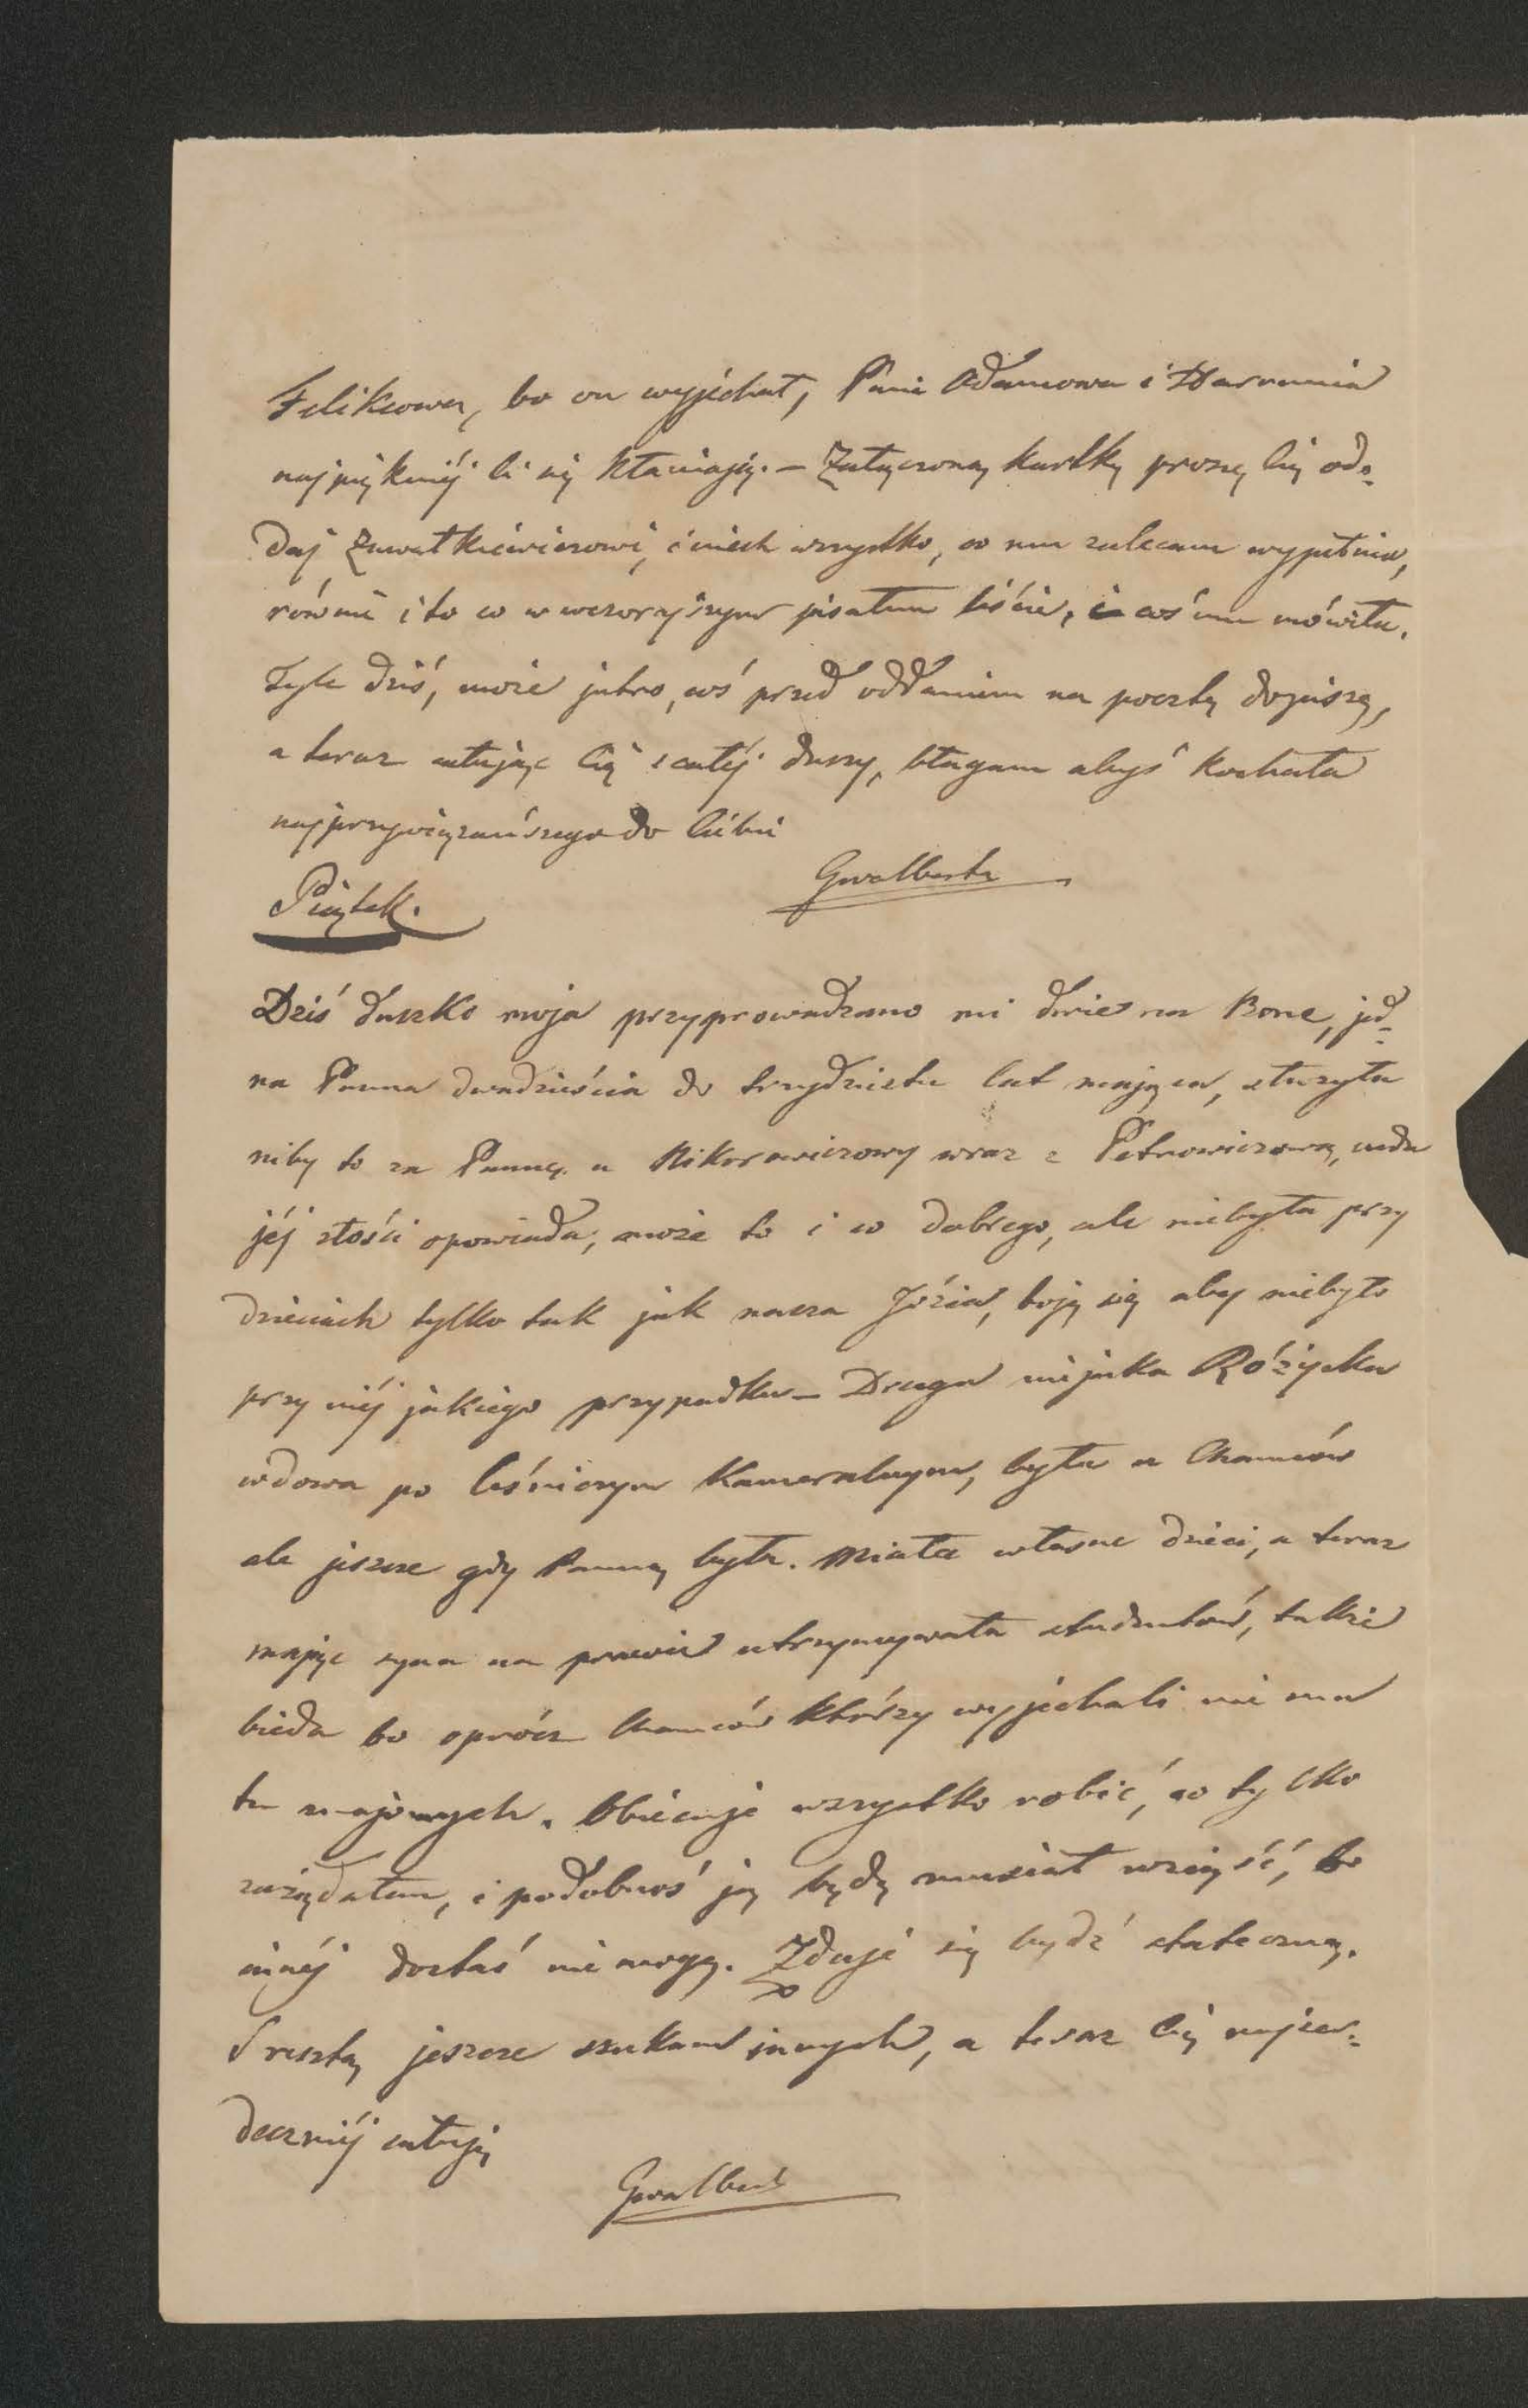 Felixowa, bo on wyjechał, Pani Adamowa i Marcunia
najpiękniéj Ci się kłaniają. – Załączoną kartkę proszę Cię od=
daj Zawałkiewiczowi, i niech wszystko, co mu zalecam wypełnia,
równie i to co w wczorajszym pisałem liście, i coś mu mówiła.
Tyle dziś, może jutro, coś przed oddaniem na pocztę dopiszę,
a teraz całując Cię z całéj duszy, błagam abyś kochała
najprzywiązańszego do Ciebie
Gwalberta
Piątek.
Dziś duszko moja przyprowadzano mi dwie na Bonę, jed=
na Panna dwadzieścia do trzydziestu lat mająca, służyła
niby to za Pannę u Nikorowiczowy wraz z Petrowiczową, cuda
jéj złości opowiada, może to i co dobrego, ale niebyła przy
dzieciach tylko tak jak nasza Józia, boję się aby niebyło
przy niéj jakiego przypadku – Druga niejaka Różycka
wdowa po leśniczym Kameralnym, była u
ale jeszcze gdy Panną była. Miała własne dzieci, a teraz
mając syna na prawie utrzymywała studentów, także
bieda bo oprócz którzy wyjechali nie ma
tu znajomych. Obiecuje wszystko robić, co tylko
zażądałem, i podobnoś ją będę musiał wziąść, bo
innéj dostać nie mogę. Zdaje się bydź stateczną.
Zresztą jeszcze szukam innych, a teraz Cię najser=
deczniéj całuję
Gwalbert